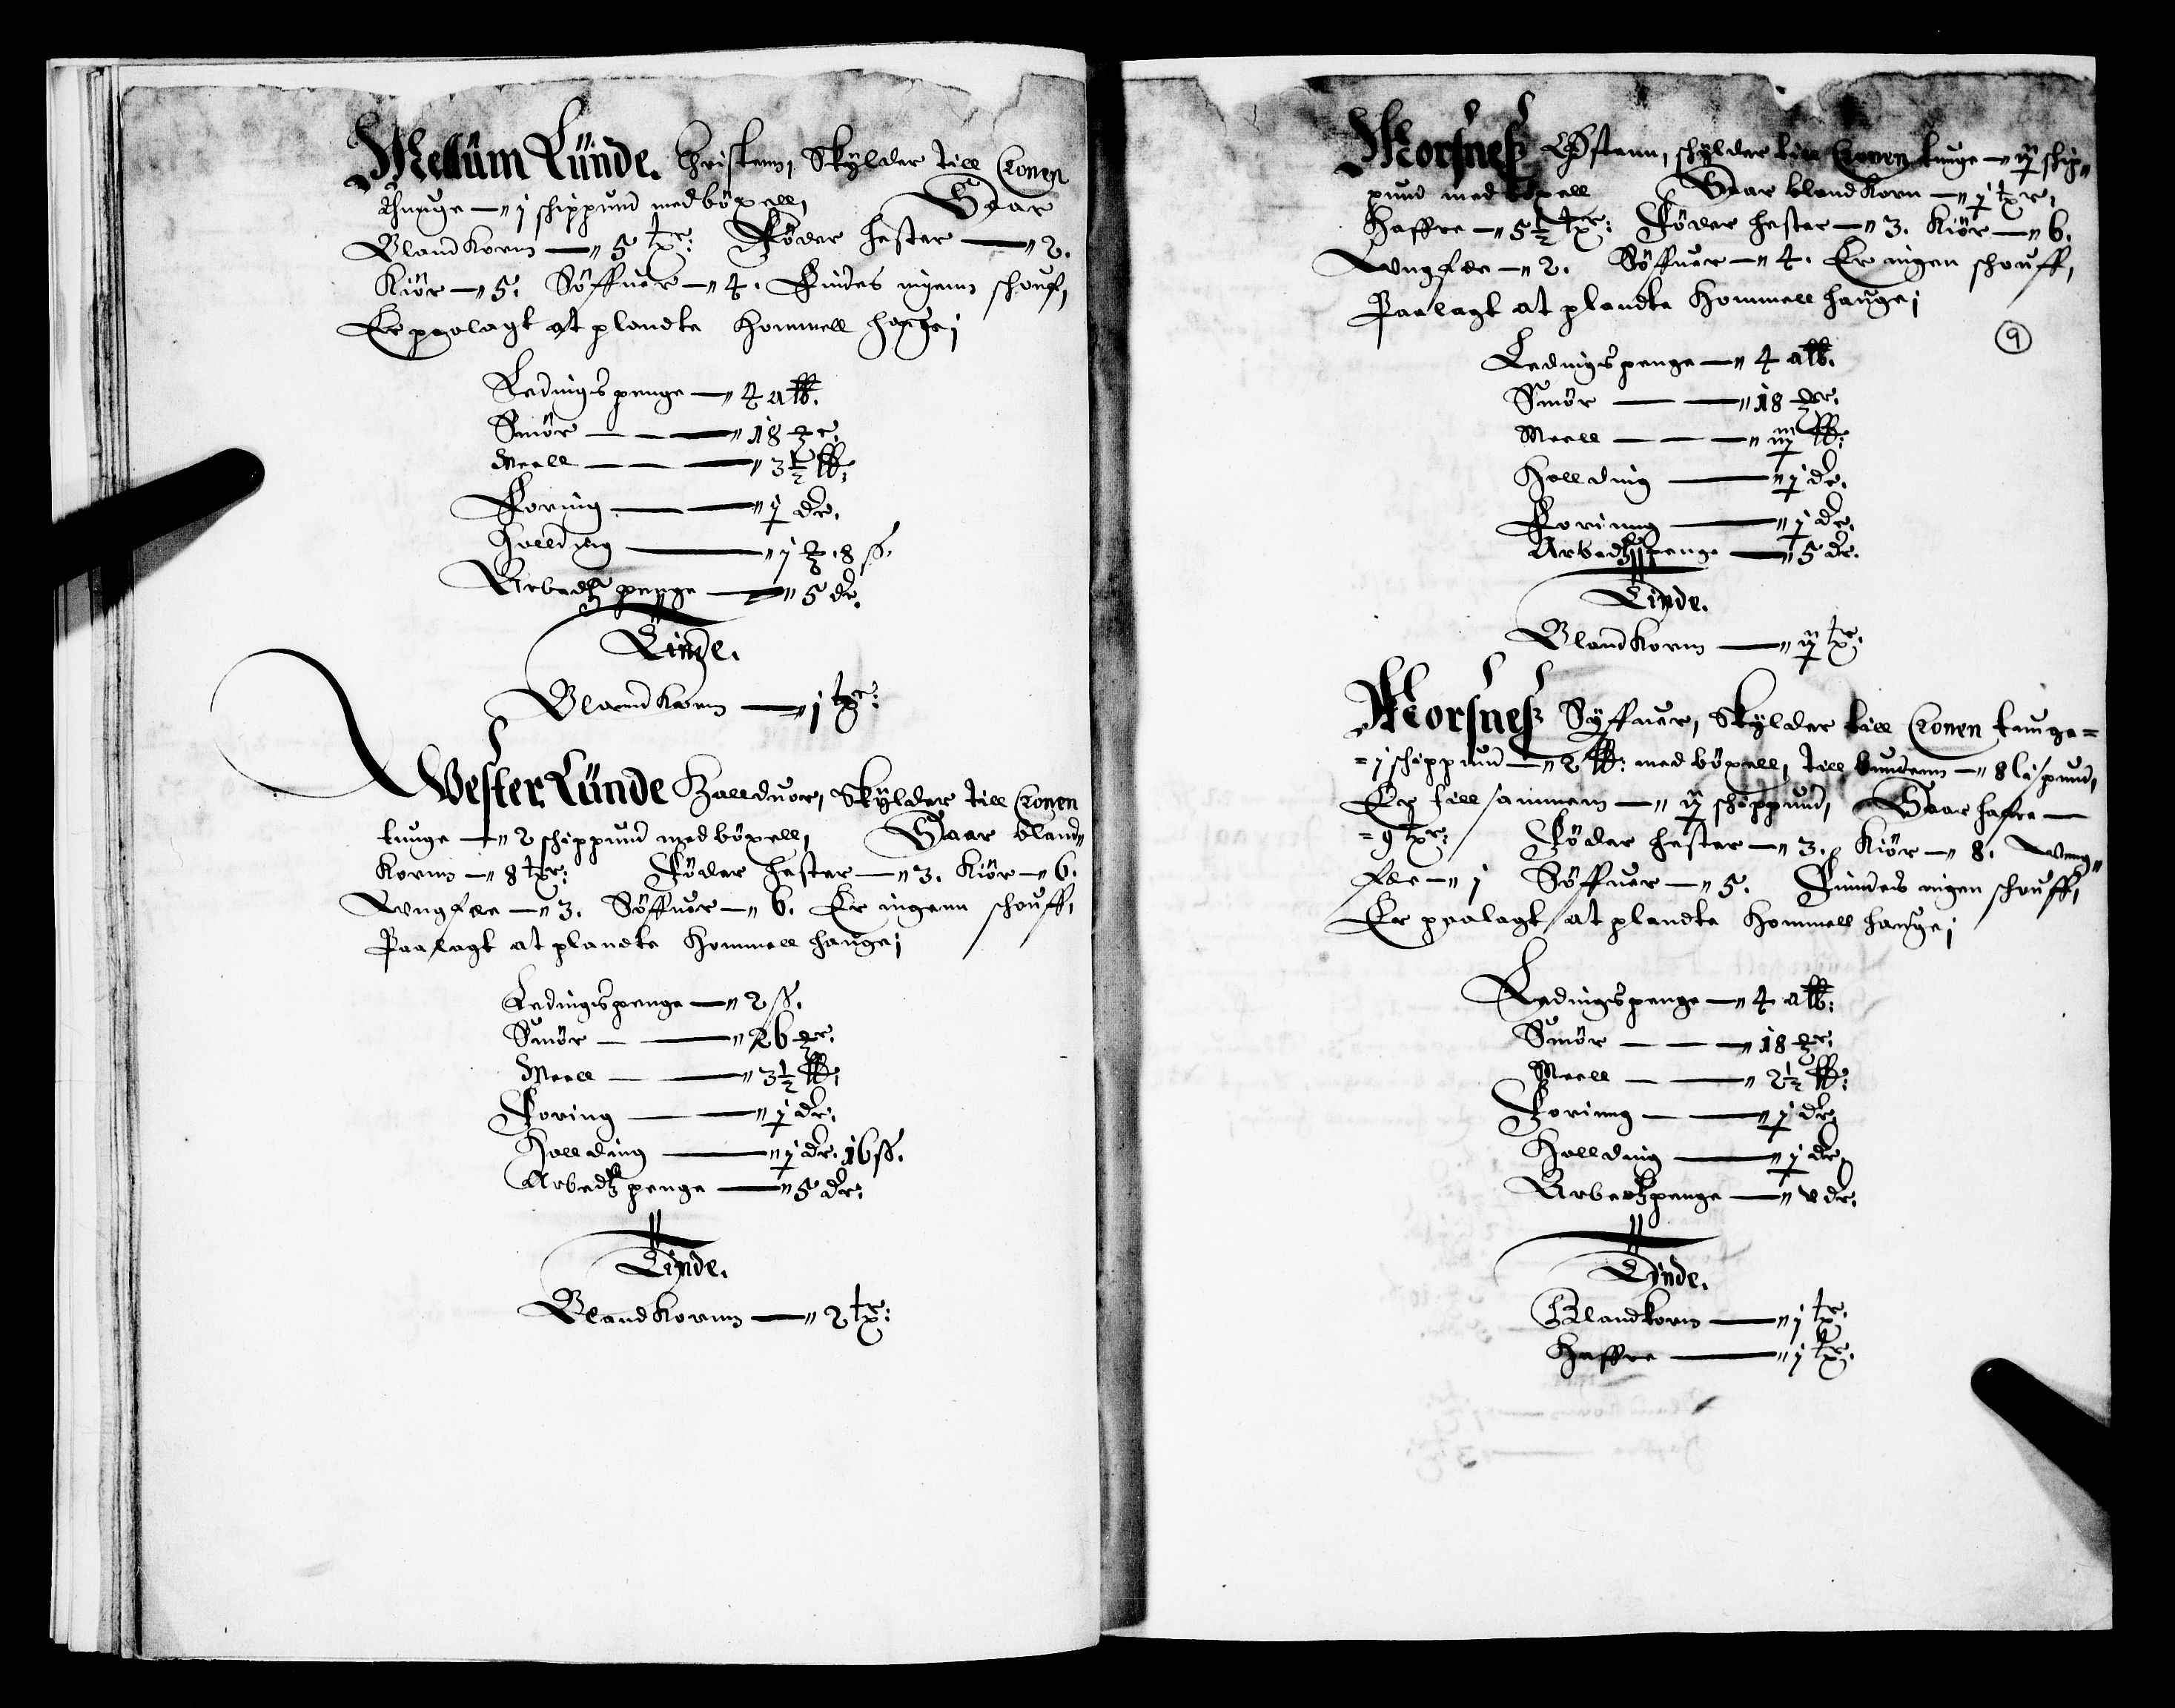 Mellüm Lünde. Christenn, Skÿlder till Cronen
Thunge — 1 schippund med böxell, Saar
Blandkornn — 5 tr: Föder Hester — 2.
Kiör — 5. Söffuer — 4. Findes ingenn schouf,
Er paalagt at plandte Hommell hauge;
Ledingspenge — 4 alb.
Smör — 18
Meell — 3½
Foring — 1 dr.
Hollding — 1 8 ß.
Arbedtz penge — 5 dr.
Tinde.
Blanndkornn — 1 tr:
Wester Lünde Halduor, Skÿlder till Cronen
tunge — 2 schippund med böxell, Saar bland
Kornn — 8 tr: Föder Hester — 3. Kiör — 6.
Vngfee — 3. Söffuer — 6. Er ingenn schouff,
Paalagt at plandte Hommell hauge;
Ledingspenge — 2 ß.
Smör — 26
Meell — 3½
Foring — 1 dr:
Hollding — 1 dr. 16 ß.
Arbedtz penge — 5 dr:
Tinde.
Blandkornn — 2 tr:
Morsneß Östenn, schÿlder till Cronen tunge — ij skip
pund med böxell Saar blandkorn — 1 tr:
Haffre — 5½ tr: Föder Hester — 3. Kiör — 6.
Vngfee — 2. Söffuer — 4. Er ingen schouff,
Paalagt at plandte Hommell hauge;
9
Ledingspenge — 4 alb.
Smör — 18
Meell — iij
Hollding — 1 dr.
Foringg — 1 dr.
Arbedtz penge — 5 dr.
Tinde.
Blandkornn — ij tr:
Morsneß Syffuer, Skÿlder till Cronen tunge =
= 1 schippund — 2 med böxell, till bundenn — 8 lispund,
Er tillsammen — ij schippund, Saar haffre —
= 9 tr: Föder Hester — 3. Kiör — 8. Vng
fee — 1 Söffuer — 5. Findes ingen schouff,
Er paalagt at plandte Hommell hauge;
Ledingspenge — 4 alb:
Smör — 18
Meell — 2½
Foringg — 1 dr.
Hollding — 1 dr.
Arbedtzpenge — v dr.
Tinde.
Blandkorn — 1 tr.
Haffre — 1 tr.